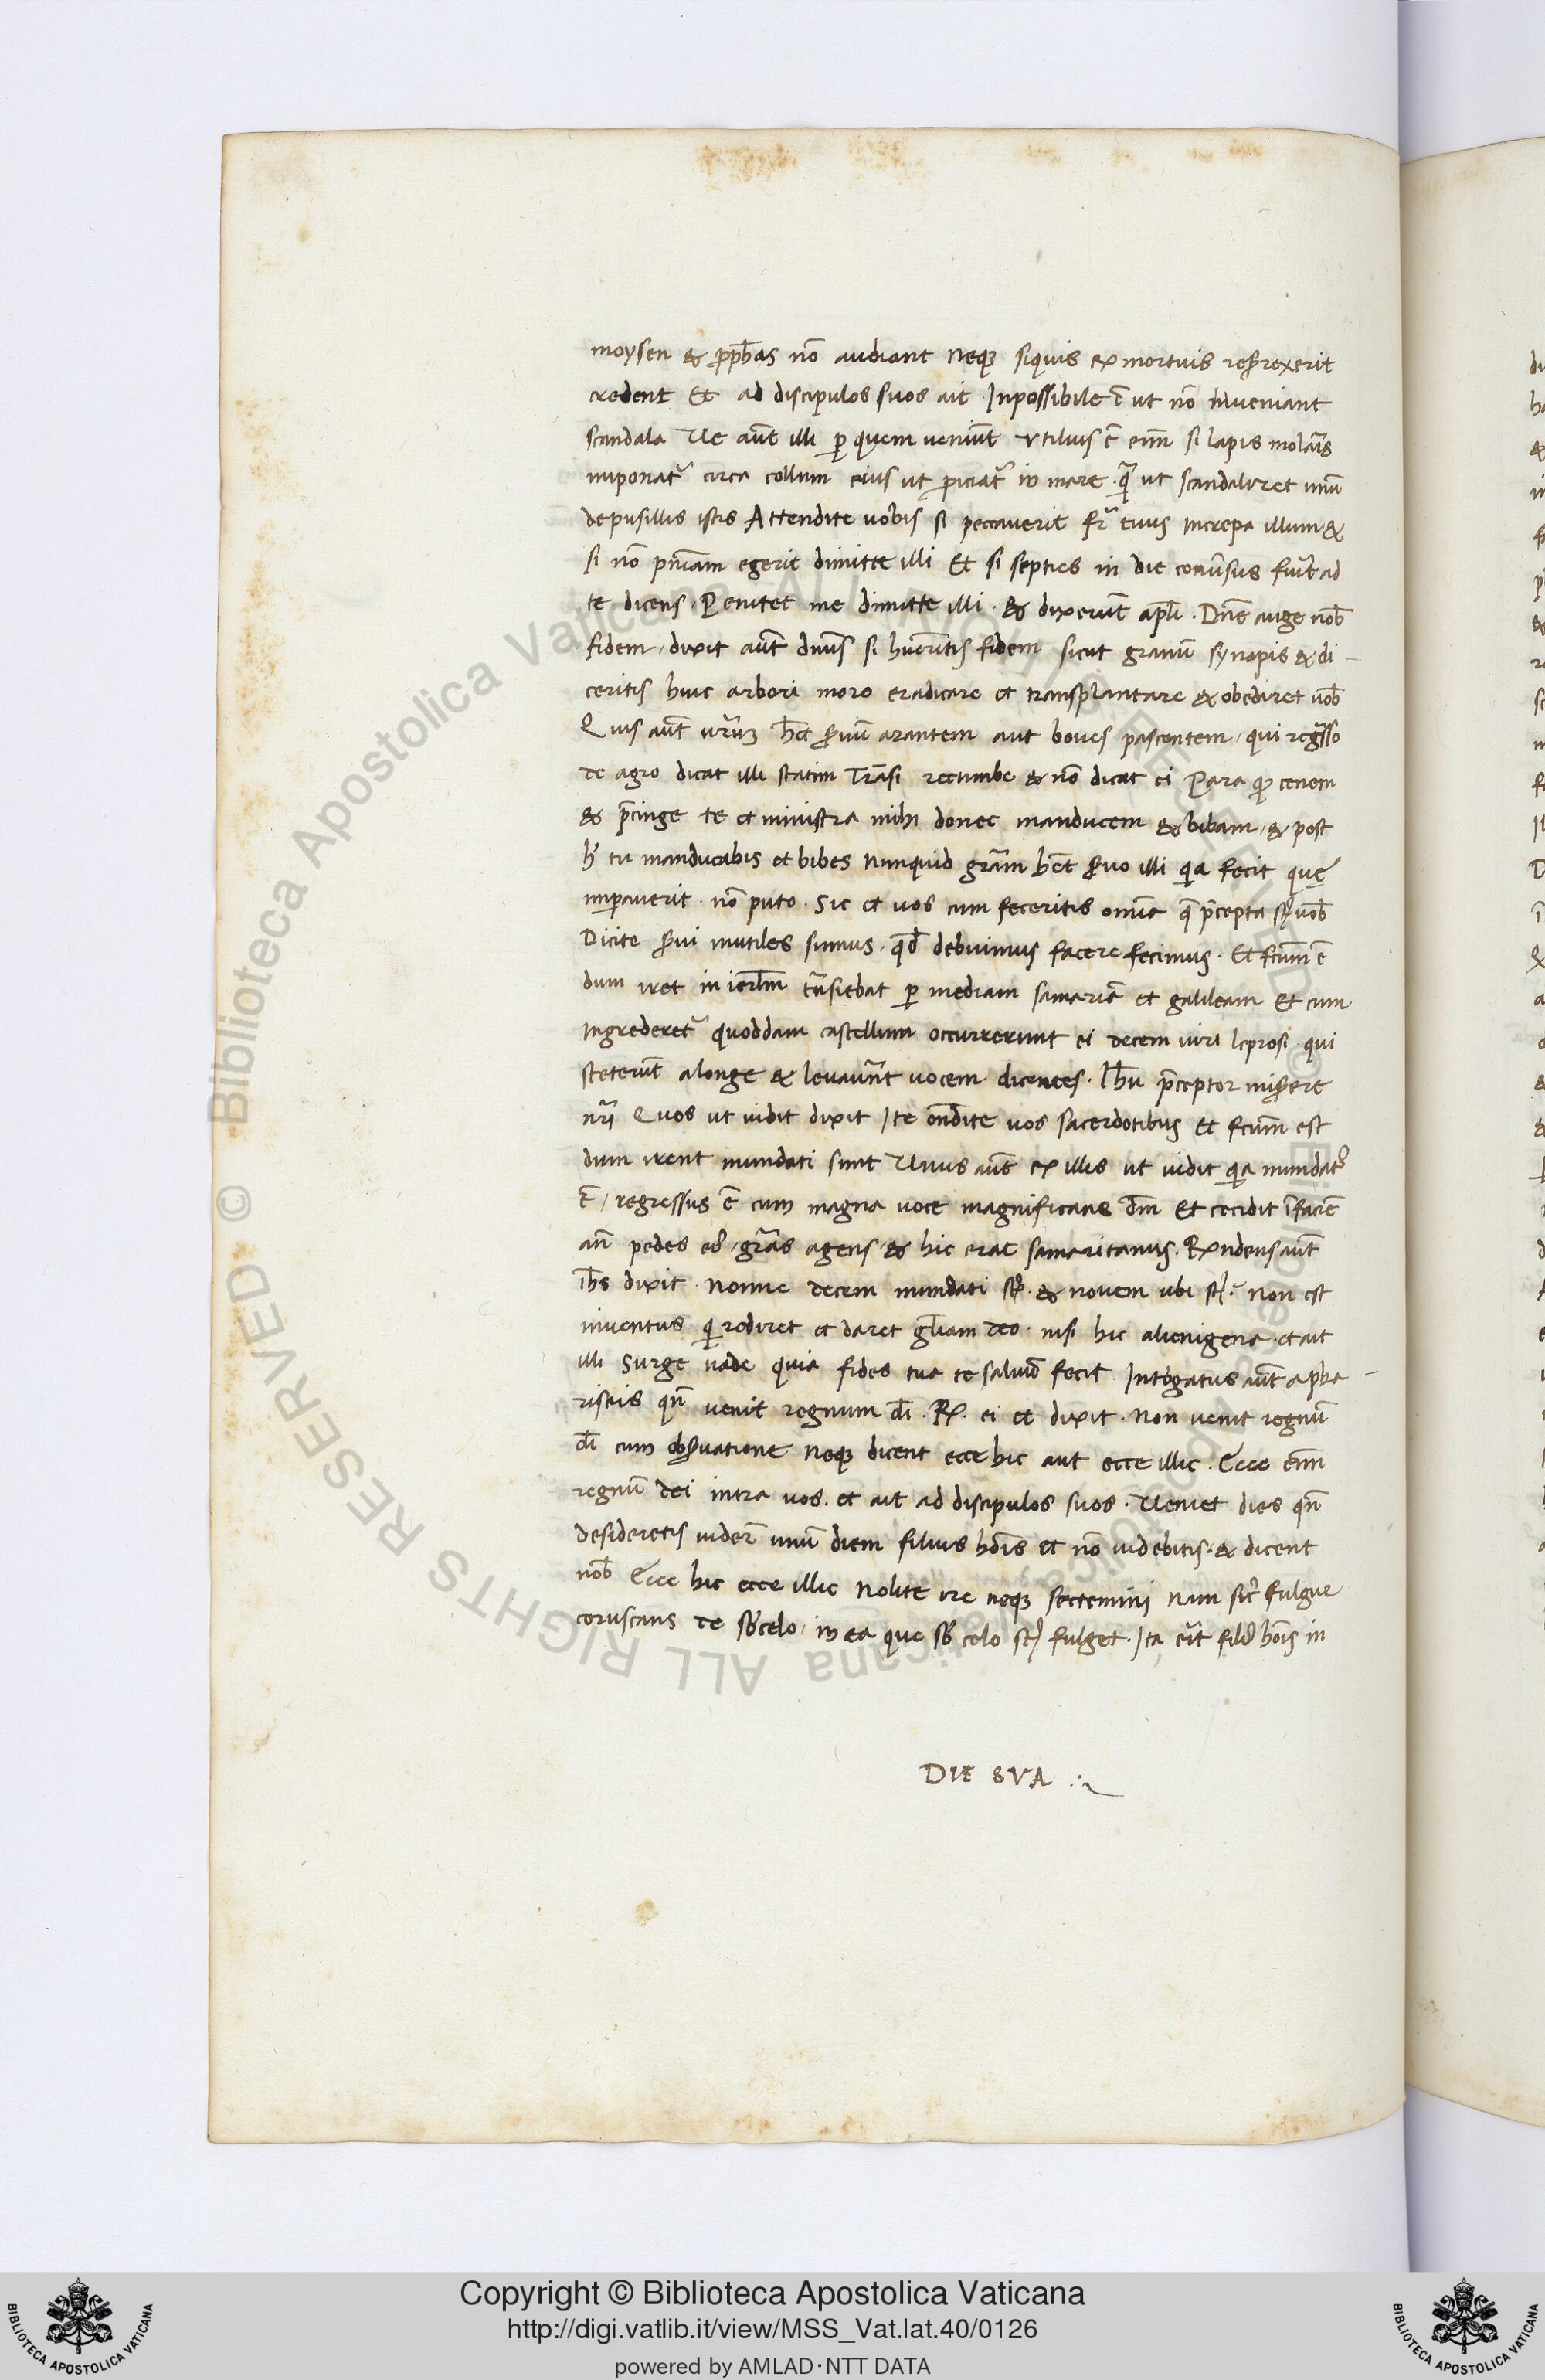 moysen & ꝓph̄as nō audiant neqꝫ siquis ex mortuis resurrexerit
credent Et ad discipulos suos ait . Inpossibile ē ut nō inveniant
scandala Ve aūt illi ꝑ quem veniūt Vtilius ē enī si lapis molaris
imponat᷑ circa collum eius ut proiciat᷑ in mare . quā ut scandalizet unū
de pusillis istis Attendite vobis si peccaverit fr̄ tuus increpa illum &
si nō pn̄iam egerit dimitte illi Et si septies in die conversus fuerit ad
te dicens . Penitet me dimitte illi . & dixerūt apl̄i . Dn̄e auge nob̄
fidem . dixit aūt dn̄us si hueritis fidem sicut granū synapis & di-
ceritis huic arbori moro eradicare et transplantare & obediret vob̄
Quis aūt vr̄um h̄et servū arantem aut boves pascentem . qui regresso
de agro dicat illi statim Trāsi recumbe & nō dicat ei Para quod cenem
& p̄cinge te et ministra mihi donec manducem & bibam . & post
hec tu manducabis et bibes Nunquid gr̄am h̄et servo illi quia fecit quę
imperaverit . nō puto . Sic et vos cum feceritis om̄ia que p̄cepta sunt vob̄
Dicite servi inutiles sumus . quod debuimus facere fecimus . Et fc̄um ē
dum iret in ierlm̄ trāsiebat ꝑ mediam samariā et galileam Et cum
ingrederet᷑ quoddam castellum occurrerunt ei decem viri leprosi qui
steterūt alonge & levaverūt vocem dicentes . Ih̄u p̄ceptor miserere
nr̄i Quos ut vidit dixit Ite ondite vos sacerdotibus Et fc̄um est
dum irent mundati sunt Vnus aūt ex illis ut vidit quia mundatus
ē / regressus ē cum magna voce magnificans dm̄ Et cecidit ī faciē
an̄ pedes eius . gr̄as agens & hic erat samaritanus . Rn̄dens aūt
ih̄s dixit . Nonne decem mundati sunt . & novem ubi sunt . Non est
inventus qui rediret et daret gl̄iam deo . nisi hic alienigena . et ait
illi Surge vade quia fides tua te salvū fecit . Interogatus aūt a pha-
riseis qn̄ venit regnum dī . R̄ . ei et dixit . Non venit regnū
dī cum observatione Neqꝫ dicent ecce hic aut ecce illic . Ecce enī
regnū dei intra vos . et ait ad discipulos suos . Veniet dies qn̄
desideretis viderē unū diem filius hōis et nō videbitis . & dicent
vob̄ Ecce hic ecce illic Nolite ire neqꝫ sectemini Nam sicut fulgur
coruscans de sub celo . in ea que sub celo sunt fulget . Ita erit filius hōis in
DIE SVA
© Biblioteca Apostolica Vaticana ALL RIGHTS RESERVED
Copyright © Biblioteca Apostolica Vaticana
http://digi.vatlib.it/view/MSS_Vat.lat.40/0126
powered by AMLAD·NTT DATA
BIBLIOTECA APOSTOLICA VATICANA
BIBLIOTECA APOSTOLICA VATICANA